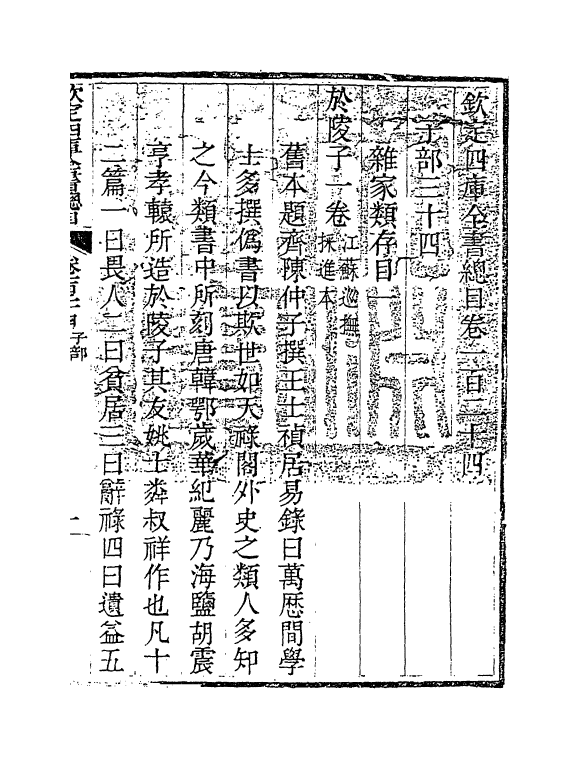 欽定四庫全書總目卷一百二十四
子部三十四
雜家類存目一
於陵子一卷江蘇巡撫採進本
舊本題齊陳仲子撰王士禎居易錄曰萬厯間學
士多撰偽書以欺世如天祿閣外史之類人多知
之今類書中所刻唐韓鄂歲華紀麗乃海鹽胡震
亨孝轅所造於陵子其友姚士粦叔祥作也凡十
二篇一曰畏人二曰貧居三曰辭祿四曰遺葢五
欽定四庫全書總目
子部
一